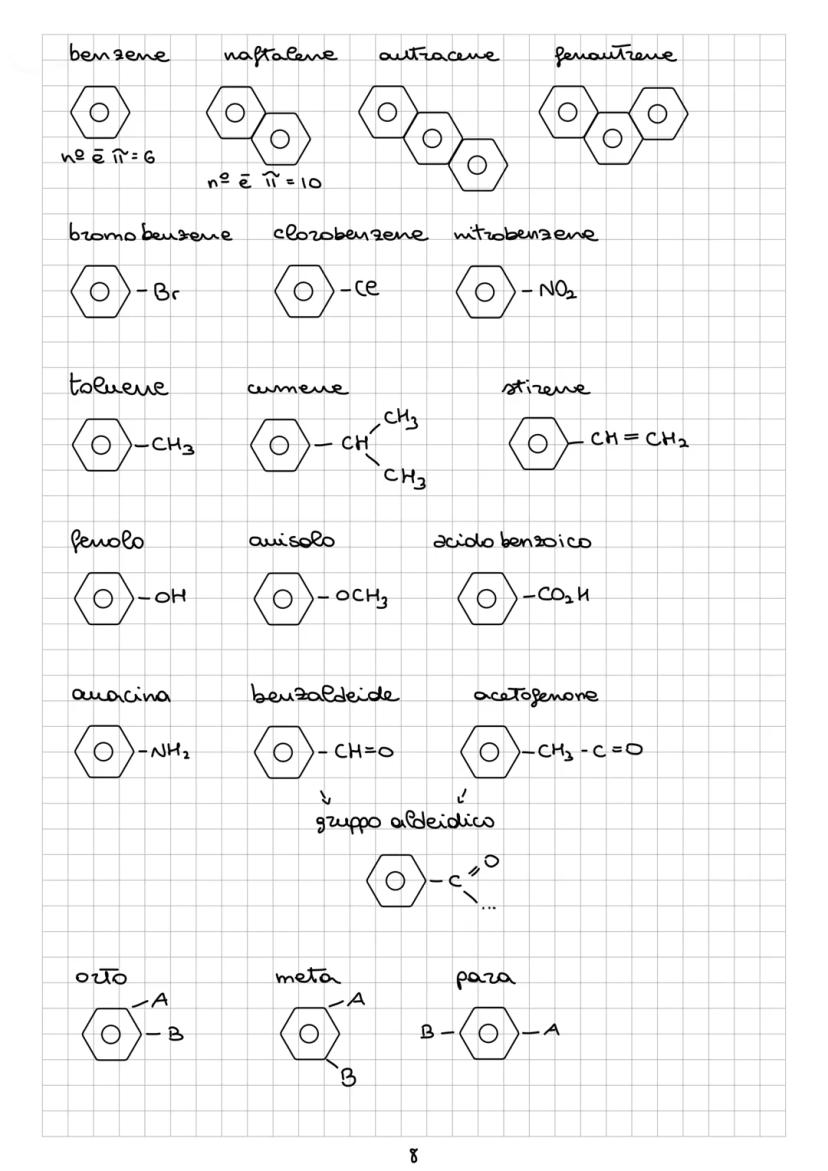 benzene naftalene antracene fenantrene
nº ē π = 6
nº ē π = 10
bromobenzene clorobenzene nitrobenzene
-Br -Cl -NO2
toluene cumene stirene
CH3
-CH3 -CH CH=CH2
CH3
fenolo anisolo acido benzoico
-OH -OCH3 -CO2H
anacina benzaldeide acetofenone
-NH2 -CH=O -CH3-C=O
gruppo aldeidico
O
-C
...
orto meta para
-A -A
-B B- -A
B
8